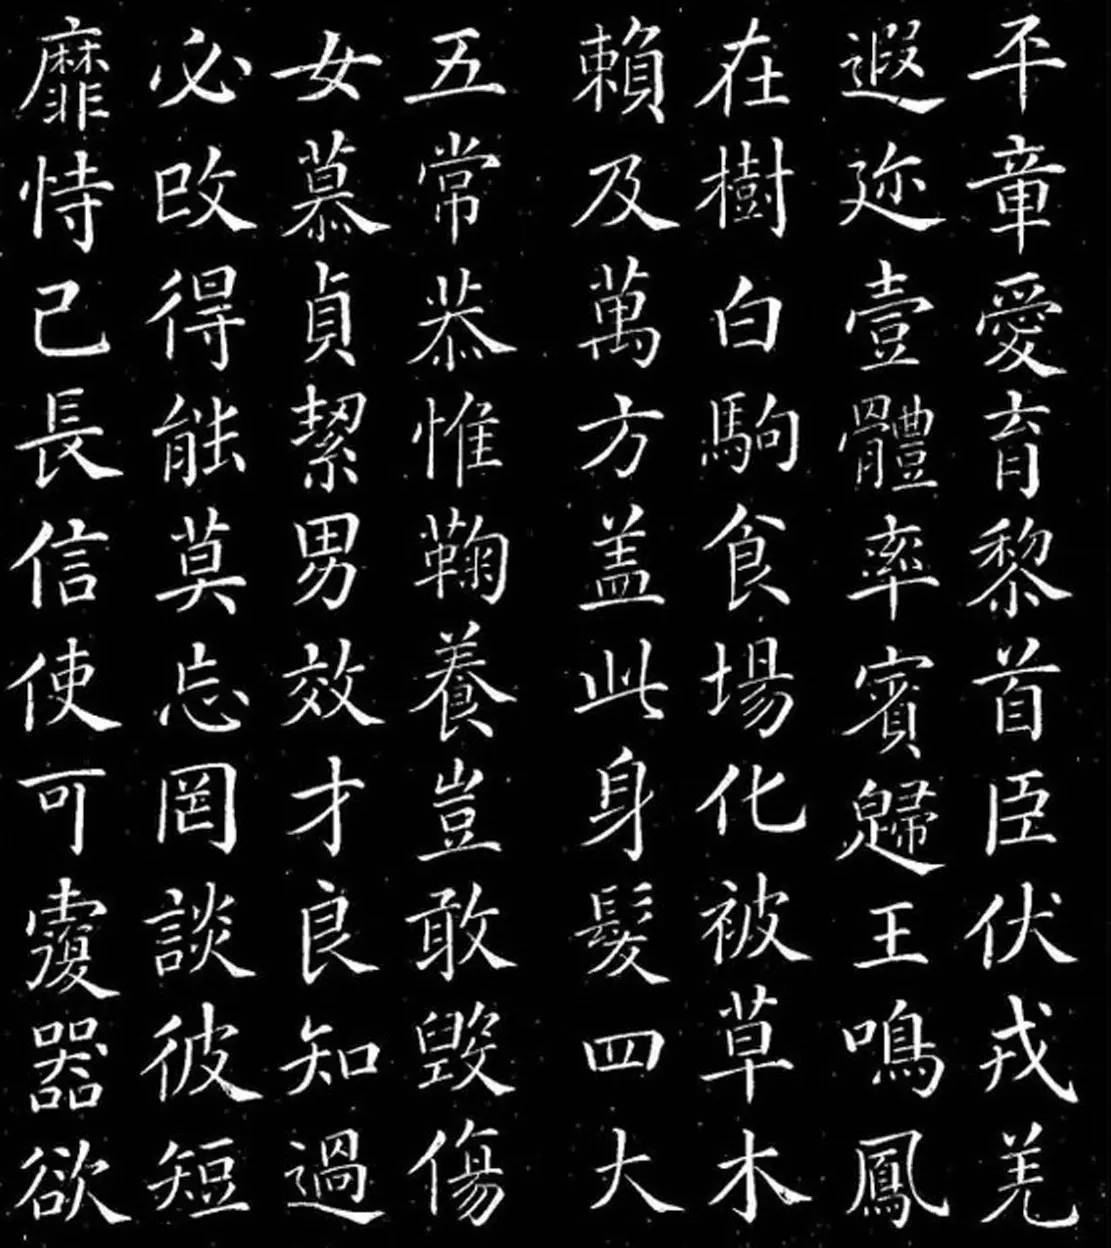 平章愛育黎首臣伏戎羌
遐迩壹體率賓歸王鳴鳳
在樹白駒食場化被草木
賴及萬方盖此身髮四大
五常恭惟鞠養豈敢毀傷
女慕貞絜男效才良知過
必改得能莫忘罔談彼短
靡恃己長信使可覆器欲